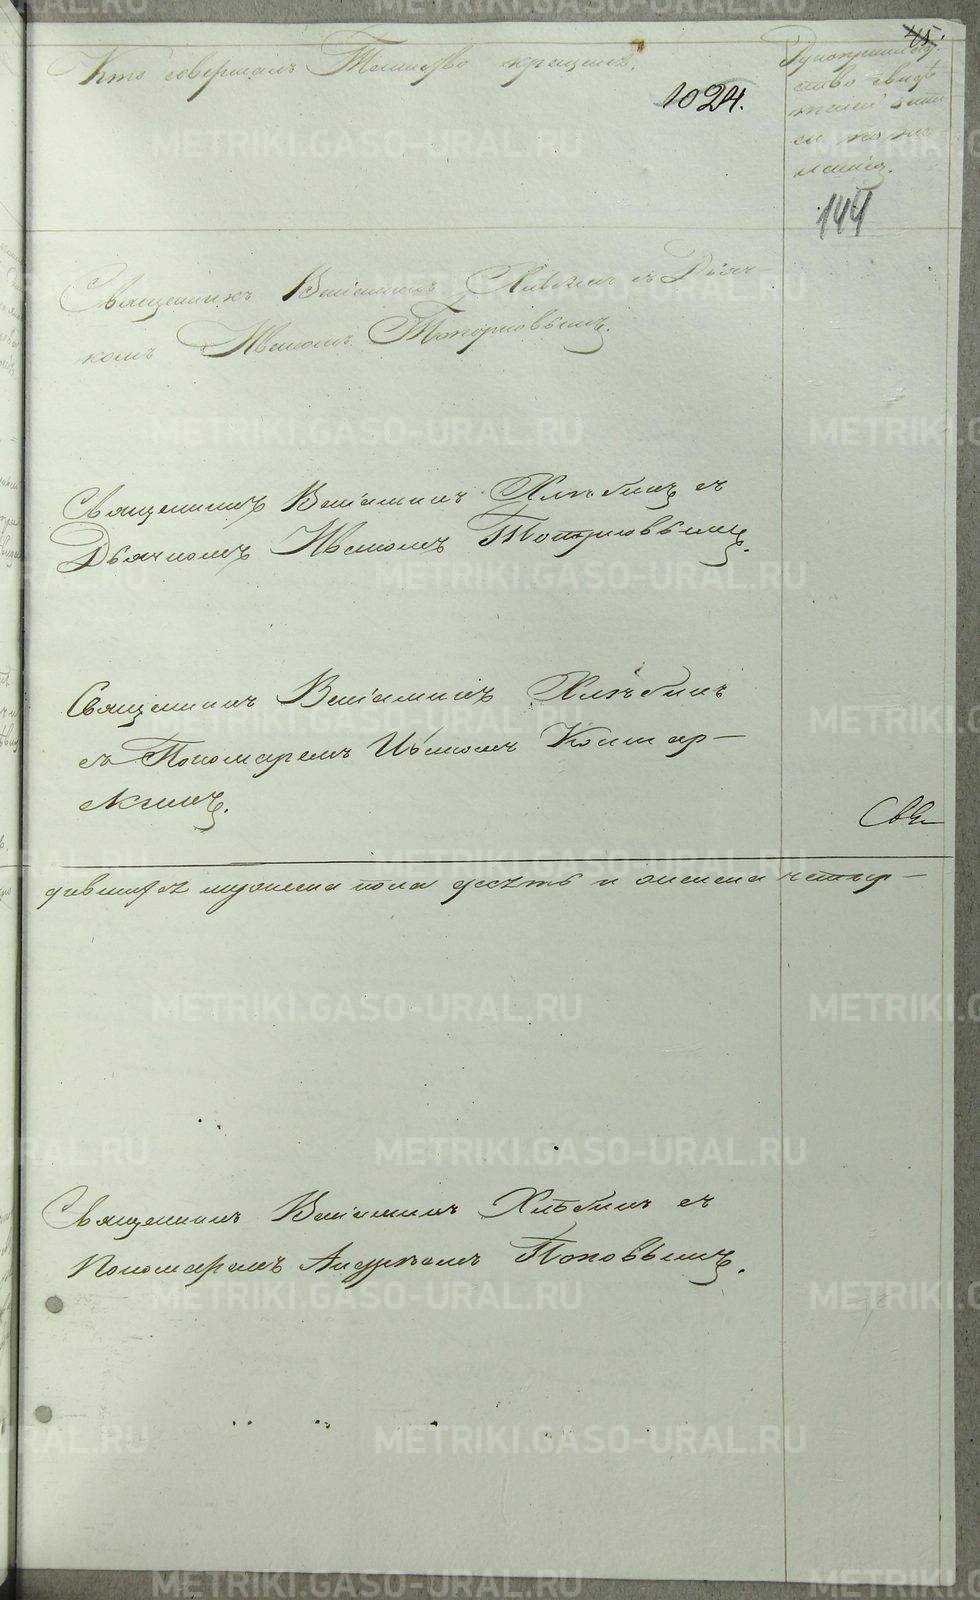 45.
Кто совершалъ Таинство крещенія.
1024.
Рукоприклад
ство свидѣ
телей записи
по же
ланію.
144
Священникъ Веніаминъ Хлѣбинъ съ Дьяч
комъ Иваномъ Топорковымъ.
Священникъ Веніаминъ Хлѣбинъ съ
Дьячкомъ Иваномъ Топорковымъ.
Священникъ Веніаминъ Хлѣбинъ
съ Пономаремъ Иваномъ
Свя
дившихся мужеска пола десять и женска четыр-
Священникъ Веніаминъ Хлѣбинъ съ
Пономаремъ Андреемъ Поповымъ.
METRIKI.GASO-URAL.RU